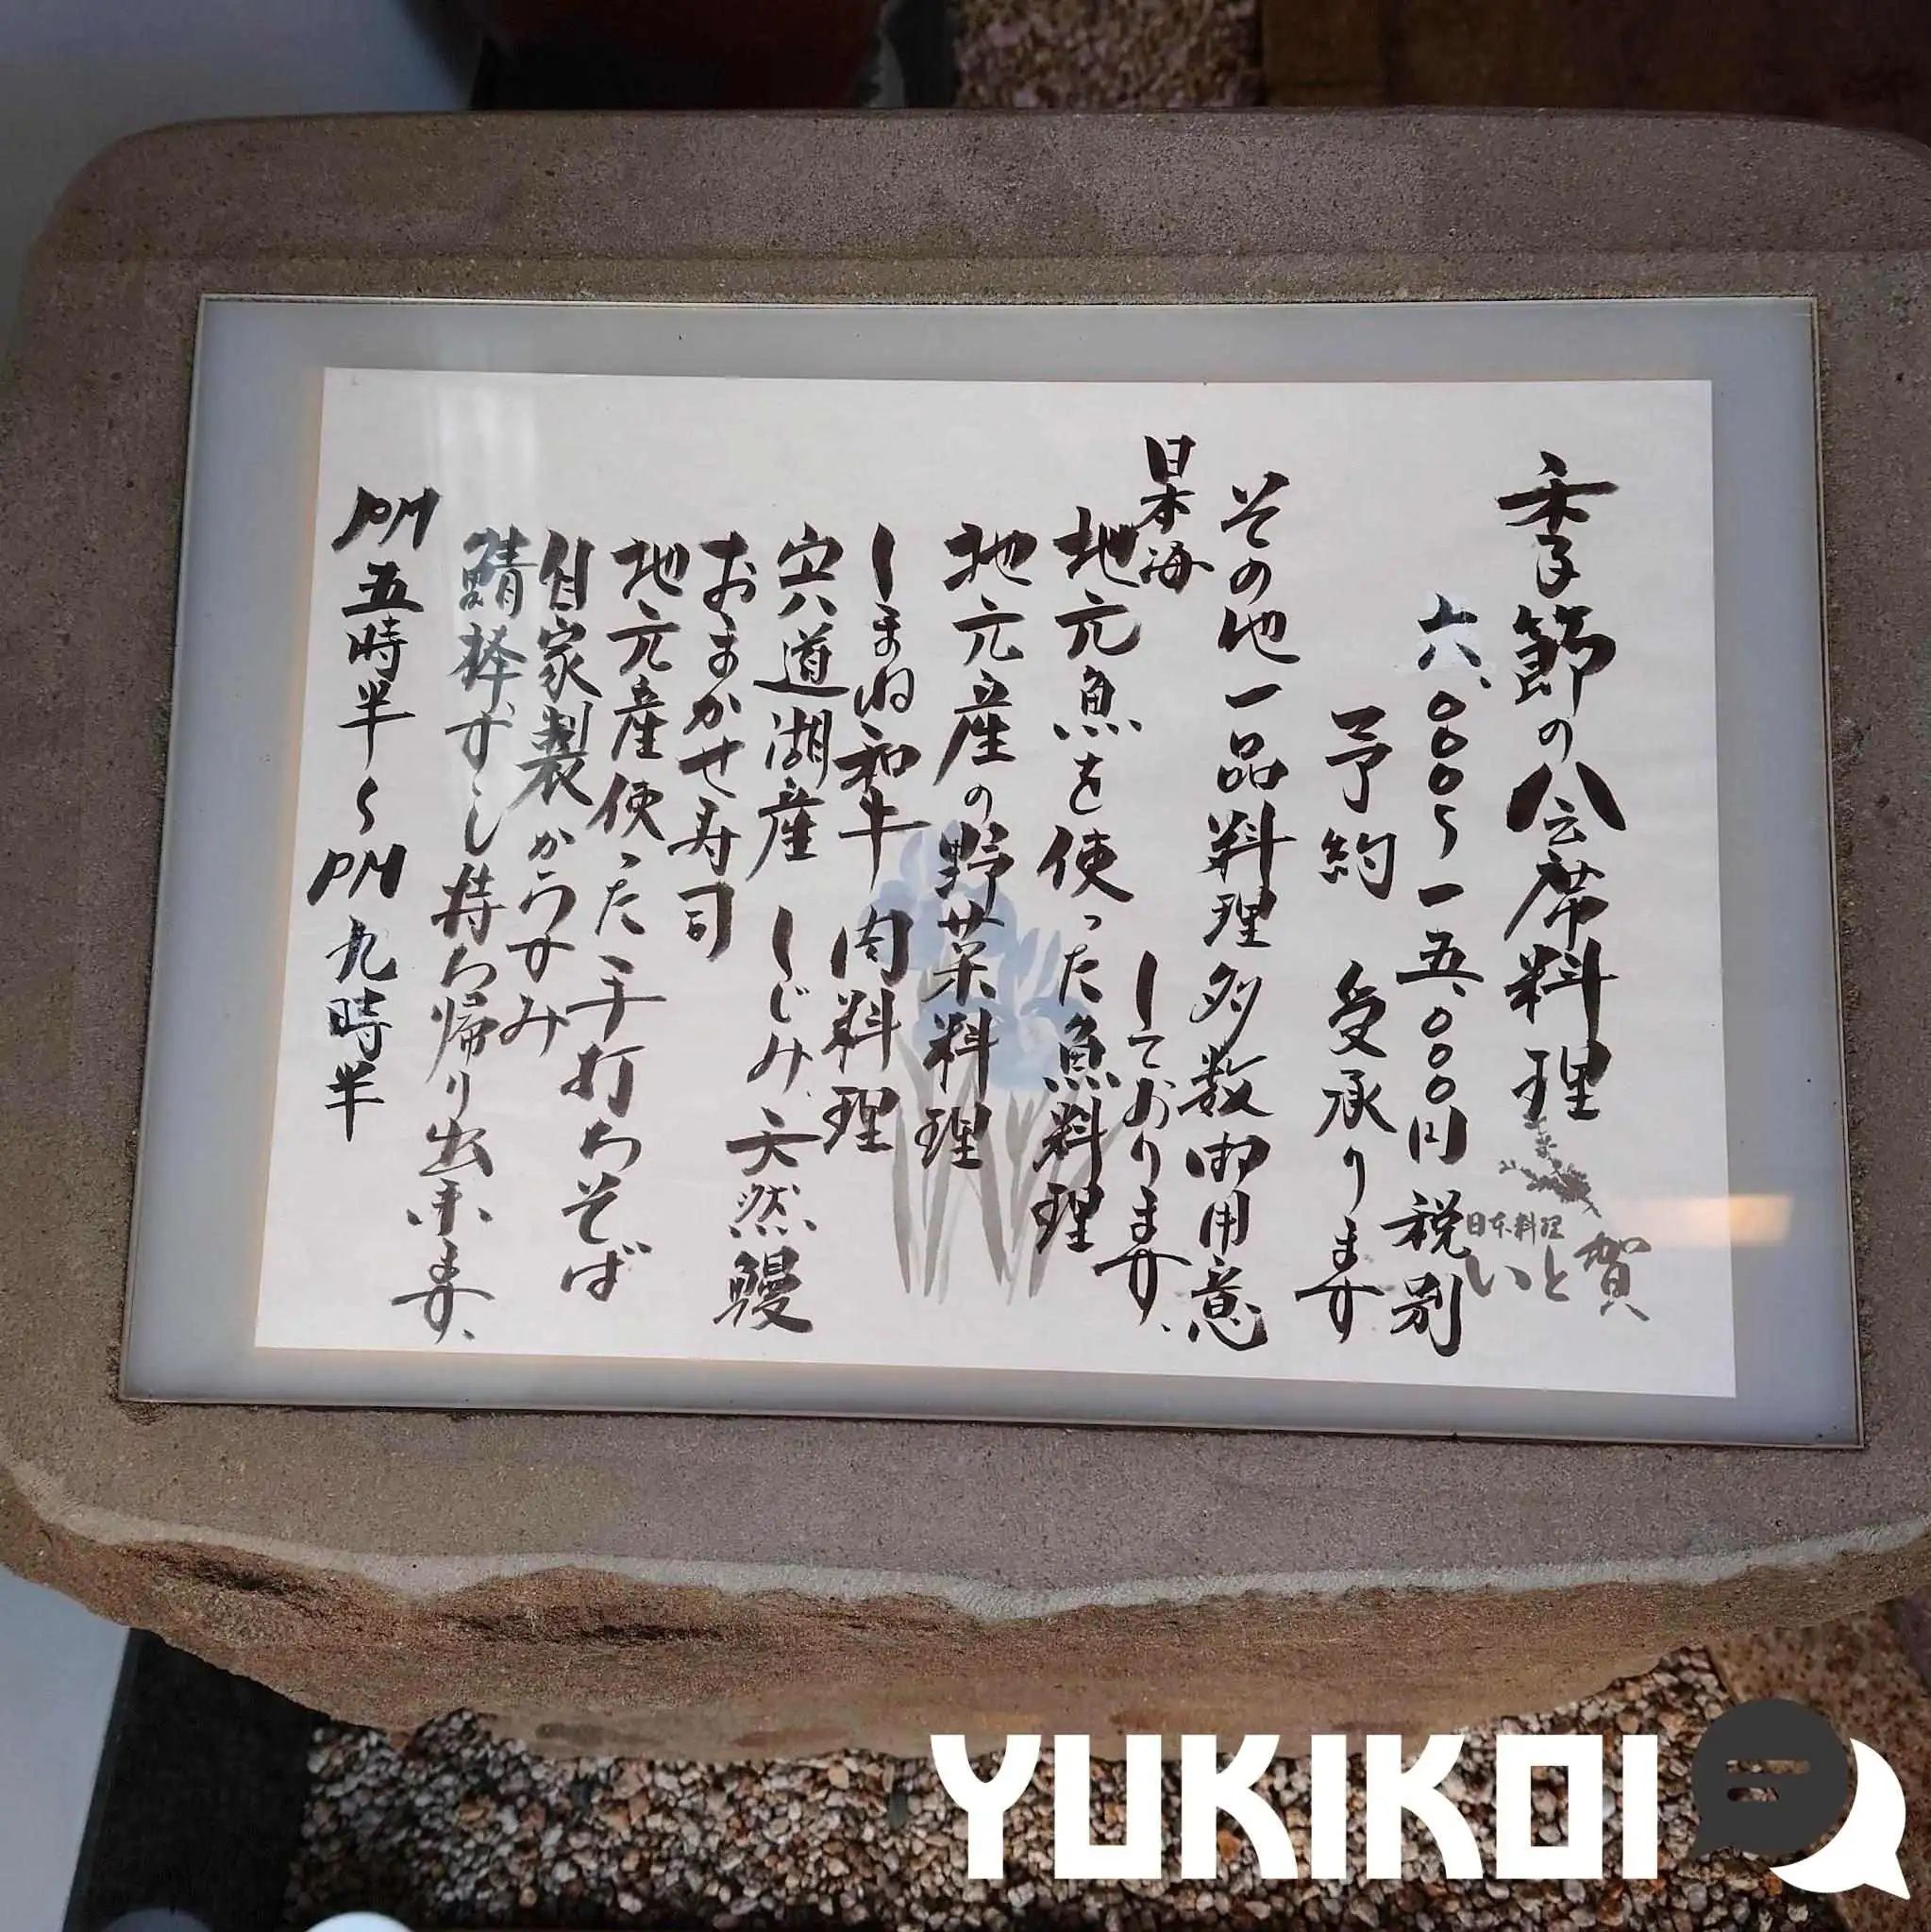 季節の会席料理
六、〇〇〇〜一五、〇〇〇円 税別
予約 受承ります
その他一品料理多数御用意
しております、
日本海
地元魚を使った魚料理
地元産の野菜料理
しまね和牛 肉料理
宍道湖産 しじみ、天然鰻
おまかせ寿司
地元産使った手打ちそば
自家製 からすみ
鯖棒ずし持ち帰り出来ます、
PM 五時半〜PM 九時半
日本料理
いと賀
YUKIKOI